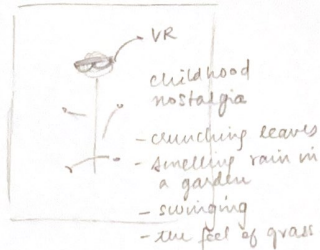 VR
childhood
nostalgia
- crunching leaves
- smelling rain in
a garden
- swinging
- the feel of grass